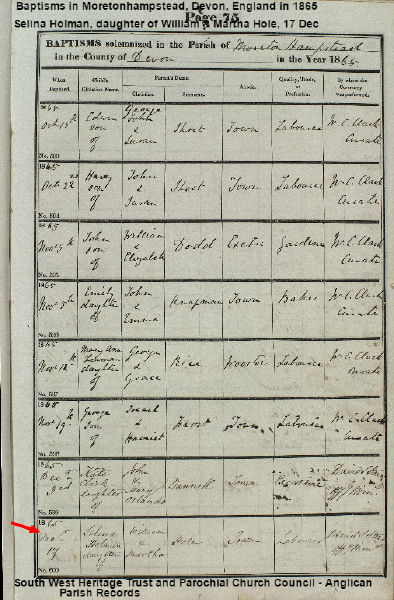 Baptisms in Moretonhampstead, Devon, England in 1865
Page 75
Selina Holman, daughter of William & Martha Hole, 17 Dec
BAPTISMS solemnized in the Parish of Moreton Hampstead
in the County of Devon in the Year 1865.
When Baptized. Child's Christian Name. Parent's Name. Christian. Surname. Abode. Quality, Trade, or Profession. By whom the Ceremony was performed.
1865 Octr 15th Edwin son of George John & Susan Shost Town Labourer W. C. Clack Curate
No. 593
1865 Octr 22nd Harry son of John & Susan Shost Town Labourer W. C. Clack Curate
No. 594
1865 Novr 5th John son of William & Elizabeth Dodd Exeter Gardener W. C. Clack Curate
No. 595
1865 Novr 5th Emily daughter of John & Emma Knapman Town Baker W. C. Clack Curate
No. 596
1865 Novr 12th Mary daughter of George & Grace Rice Wooster Labourer W. C. Clack Curate
No. 597
1865 Novr 19th George son of & Harriet Frost Town Labourer W. C. Clack Curate
No. 598
1865 Decr 3rd Kate daughter of John & Mary Town
No. 599
1865 Decr 17 Selina Holman daughter of William & Martha Hole Town Labourer
No. 600
South West Heritage Trust and Parochial Church Council - Anglican
Parish Records